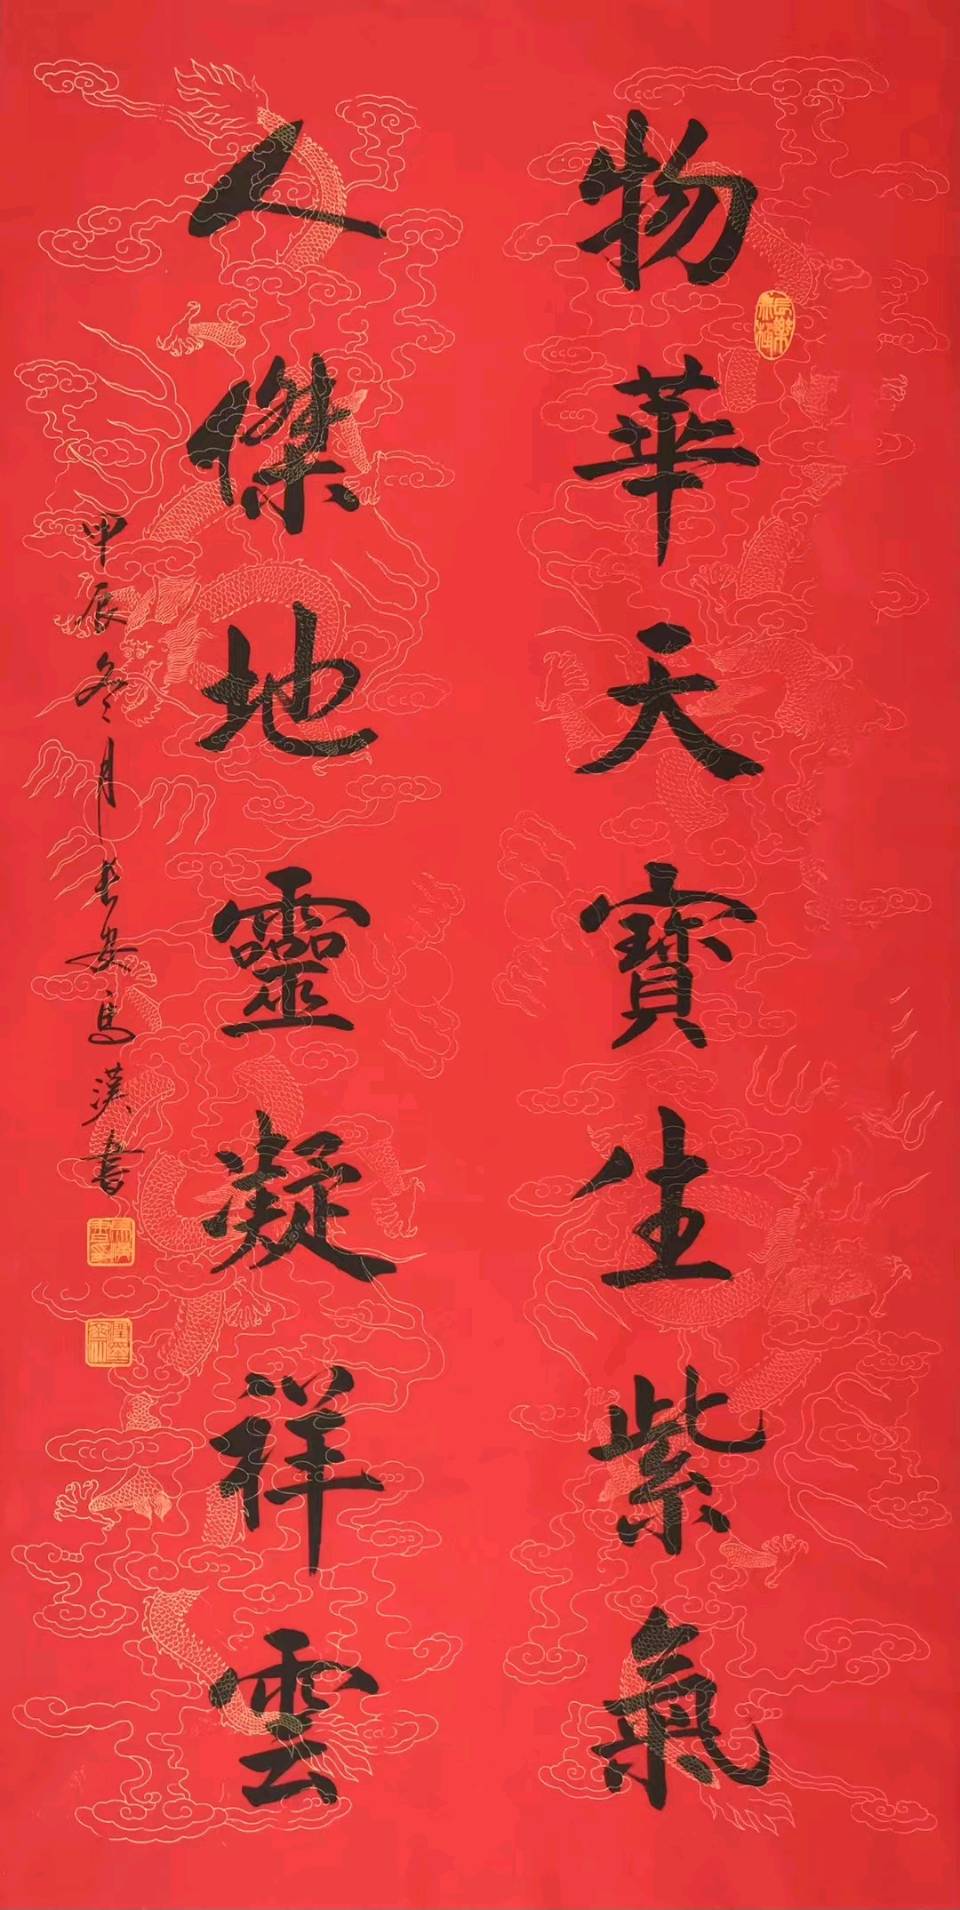 物華天寶生紫氣
人傑地靈凝祥雲
甲辰冬月長安馬漢書